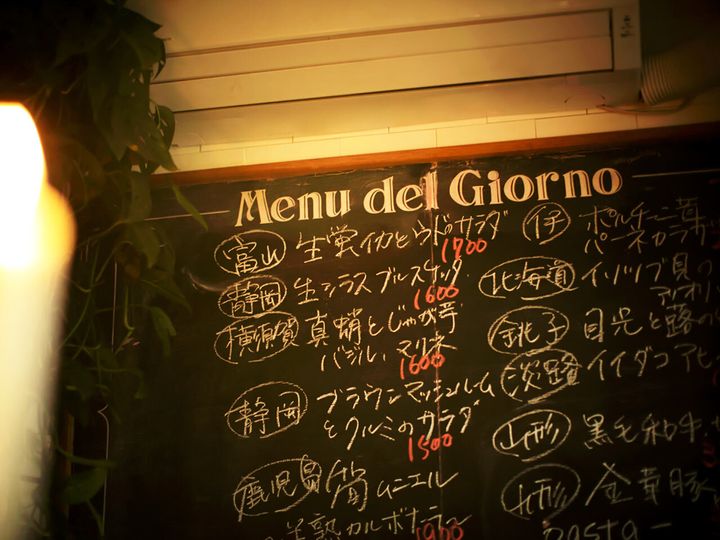 Menu del Giorno
富山 生蛍イカとウドのサラダ
1700
静岡 生シラスブルスケッタ
1600
横須賀 真蛸とじゃが芋
バジルマリネ
1600
静岡 ブラウンマッシュルーム
とクルミのサラダ
1500
鹿児島 筍ムニエル
半熟カルボナーラ
1900
伊 ポルチーニ茸
パーネカラ
北海道 イソツブ貝の
銚子 目光と蕗の
淡路 イイダコ アヒ
山形 黒毛和牛
山形 金華豚
Pasta